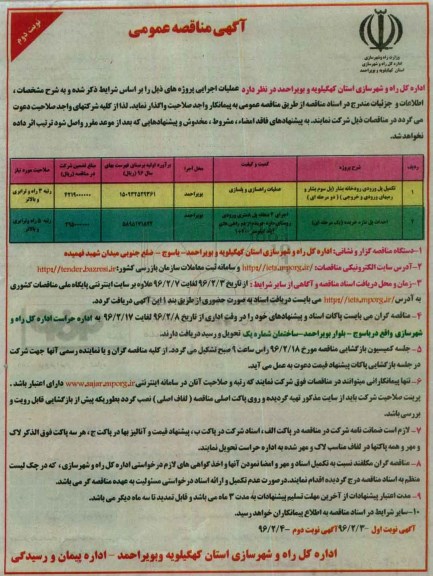 آگهی مناقصه عمومی
نوبت دوم
وزارت راه و شهرسازی
اداره کل راه و شهرسازی
استان کهگیلویه و بویراحمد
اداره کل راه و شهرسازی استان کهگیلویه و بویراحمد در نظر دارد عملیات اجرایی پروژه های ذیل را بر اساس شرایط ذکر شده و به شرح مشخصات ،
اطلاعات و جزئیات مندرج در اسناد مناقصه از طریق مناقصه عمومی به پیمانکار واجد صلاحیت واگذار نماید. لذا از کلیه شرکتهای واجد صلاحیت دعوت
می گردد در مناقصات ذیل شرکت نمایند. به پیشنهادهای فاقد امضاء ، مشروط ، مخدوش و پیشنهادهایی که بعد از موعد مقرر واصل شود ترتیب اثر داده
نخواهد شد.
ردیف شرح پروژه کمیت و کیفیت محل اجرا برآورد اولیه برمبنای فهرست بهای سال ۹۶ (ریال) مبلغ تضمین شرکت در مناقصه (ریال) صلاحیت مورد نیاز
۱ تکمیل پل ورودی رودخانه بشار (پل سوم بشار و رمپهای ورودی و خروجی) ( دو مرحله ای) عملیات راهسازی و پلسازی بویراحمد رتبه ۳ راه و ترابری و بالاتر
۲ بویراحمد
۱-دستگاه مناقصه گزار و نشانی: اداره کل راه و شهرسازی استان کهگیلویه و بویراحمد- یاسوج - ضلع جنوبی میدان شهید فهمیده
۲-آدرس سایت الکترونیکی مناقصات: http://iets.mporg.ir/ و سامانه ثبت معاملات سازمان بازرسی کشور: http://tender.bazresi.ir
۳-زمان و محل دریافت اسناد مناقصه و آگاهی از سایر شرایط : از تاریخ ۹۶/۲/۳ لغایت ۹۶/۲/۷ علاوه بر سایت اینترنتی پایگاه ملی مناقصات کشوری
به آدرس http://iets.mporg.ir/ می بایست دریافت اسناد به صورت حضوری از طریق بند ۱ این آگهی دریافت گردد.
۴-مناقصه گران می بایست پاکات اسناد و پیشنهادهای خود را در وقت اداری از تاریخ ۹۶/۲/۸ لغایت ۹۶/۲/۱۷ به اداره حراست اداره کل راه و
شهرسازی واقع در یاسوج - بلوار بویراحمد-ساختمان شماره یک تحویل و رسید دریافت دارند.
۵- جلسه کمیسیون بازگشایی مناقصه مورخ ۹۶/۲/۱۸ راس ساعت ۹ صبح تشکیل می گردد. از کلیه مناقصه گران و یا نماینده رسمی آنها جهت شرکت
در جلسه بازگشایی پاکات پیشنهاد قیمت دعوت به عمل می آید.
۶- تنها پیمانکارانی میتوانند در مناقصات فوق شرکت نمایند که رتبه و صلاحیت آنان در سامانه اینترنتی www.sajar.mporg.ir دارای اعتبار باشد .
پرینت صلاحیت شرکت باید از سایت مذکور تهیه گردیده و روی پاکت اصلی مناقصه ( لفاف اصلی ) نصب گردد بطوریکه پیش از بازگشایی قابل رویت و
بررسی باشد.
۷- لازم است ضمانت نامه شرکت در مناقصه در پاکت الف ، اسناد شرکت در پاکت ب ، پیشنهاد قیمت و آنالیز بها در پاکت ج ، هر سه پاکت فوق الذکر لاک
و مهر و همه پاکتها در لفاف مناسب لاک و مهر شده به اداره حراست تحویل نمایند.
۸- مناقصه گران مکلفند نسبت به تکمیل اسناد و مهر و امضا نمودن آنها و اخذ گواهی های لازم درخواستی اداره کل راه و شهرسازی ، که در چک لیست
منظم به اسناد مناقصه درج گردیده اقدام نمایند. در صورت عدم تکمیل و ارائه اسناد درخواستی مسئولیت به عهده مناقصه گر می باشد.
۹- مدت اعتبار پیشنهادات از آخرین مهلت تسلیم پیشنهادات به مدت ۳ ماه می باشد و قابل تمدید تا سه ماه دیگر می باشد.
۱۰-سایر شرایط در اسناد مناقصه به اطلاع پیمانکاران خواهد رسید.
آگهی نوبت اول -۹۶/۲/۳ آگهی نوبت دوم -۹۶/۲/۴
اداره کل راه و شهرسازی استان کهگیلویه وبویراحمد - اداره پیمان و رسیدگی